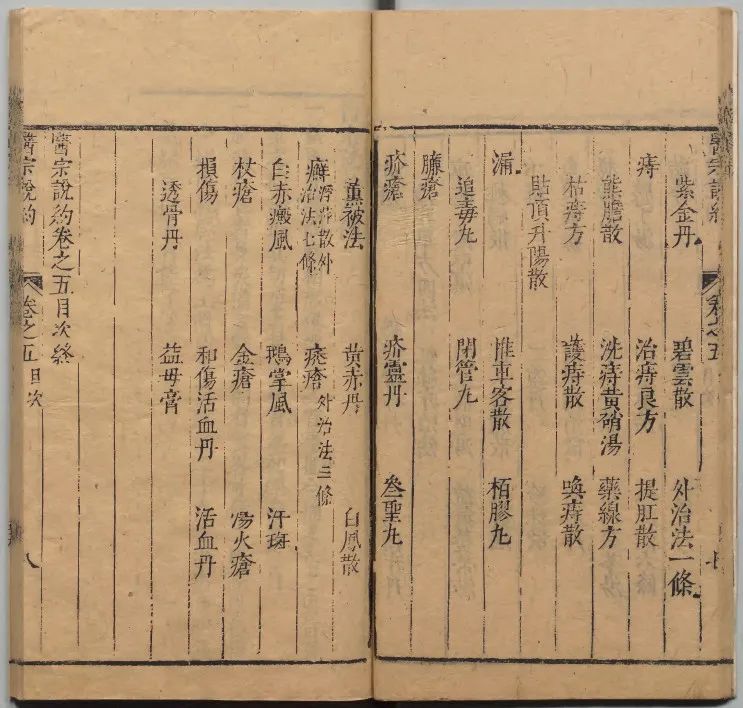 醫宗說約
卷之五
七
紫金丹 碧雲散 外治法一條
痔 治痔良方 提肛散
熊膽散 洗痔黃硝湯 藥線方
枯痔方 護痔散 喚痔散
貼頂升陽散
漏 推車客散 栢膠丸
追毒丸 閉管丸
臁瘡
疥瘡 疥靈丹 叄聖丸
薰被法 黃赤丹 白鳳散
癬 散外治法七條 瘰瘡 外治法三條
白赤癜風 鵝掌風 汗斑
杖瘡 金瘡 湯火瘡
損傷 和傷活血丹 活血丹
透骨丹 益母膏
醫宗說約卷之五目次終
醫宗說約
卷之五目次
八